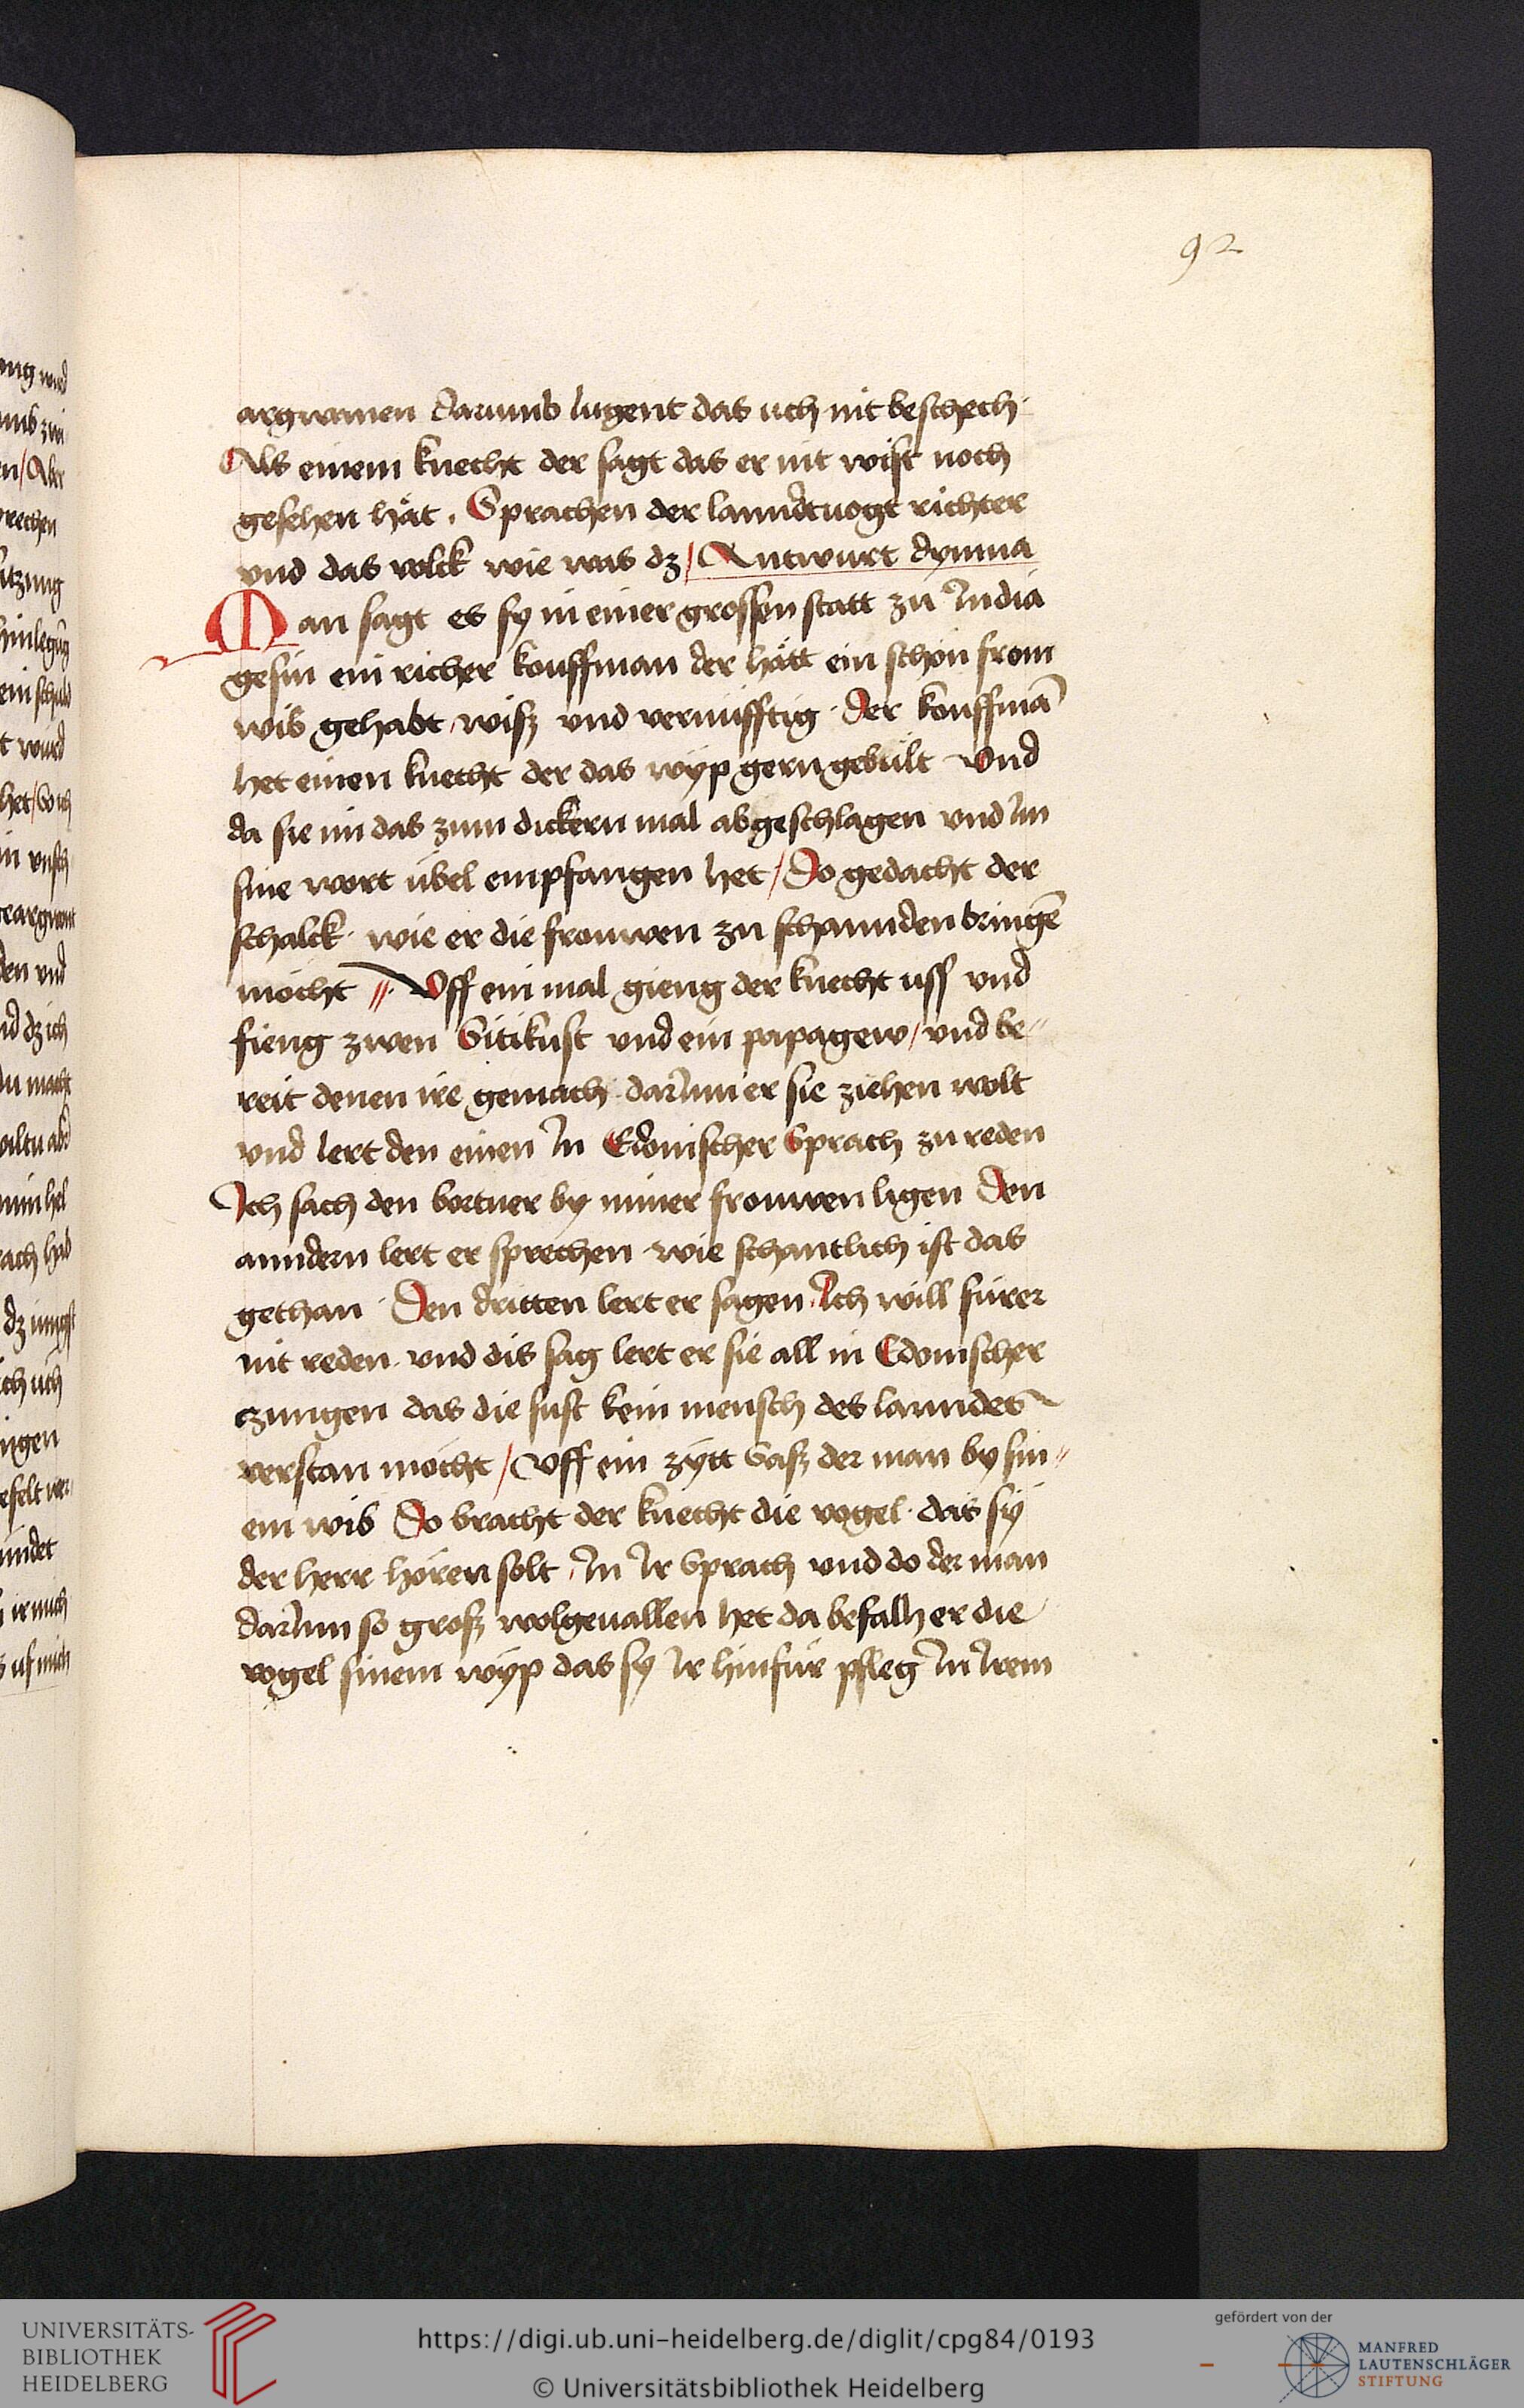 92
argwenen darumb lugent das uch nit beschech
Als einem knecht der sagt das er nit wist noch
gesehen hät. Sprachen der lanndtuogt richter
vnd das volck wie was dz / Antwurt dymna
Man sagt es sy in einer grossen statt zu India
gesin ein richer kouffman der hätt ein schön from
wib gehabt / wisz vnd vernüfftig · der kouffmā
het einen knecht der das wÿp gern gebült vnd
da sie im das zum dickern mal abgeschlagen vnd Im
sine wort übel empfangen het / Do gedacht der
schalck · wie er die frouwen zu schannden bringē
möcht //· Vff ein mal gieng der knecht uss vnd
fieng zwen Sitikust vnd ein papagew / vnd be=
reit denen ire gemach darInn er sie ziehen wolt
vnd lert den einen In Edomscher Sprach zu reden
Ich sach den bortner by miner frouwen ligen Den
anndern lert er sprechen · wie schantlich ist das
gethan · Den dritten lert er sagen · Ich will fürer
nit reden · vnd dis sag lert er sie all in Edomscher
zungen das die sust kein mensch des lanndes
verstan möcht / Vff ein zÿtt Sasz der man by sin=
em wib Do bracht der knecht die vogel · das sÿ
der herr hören solt / In Ir Sprach vnd do der man
darInn so grosz wolgeuallen het da befalh er die
vogel sinem wÿp das sy Ir hinfür pfleg In Irem
UNIVERSITÄTS-
BIBLIOTHEK
HEIDELBERG
https://digi.ub.uni-heidelberg.de/diglit/cpg84/0193
© Universitätsbibliothek Heidelberg
gefördert von der
MANFRED
LAUTENSCHLÄGER
STIFTUNG